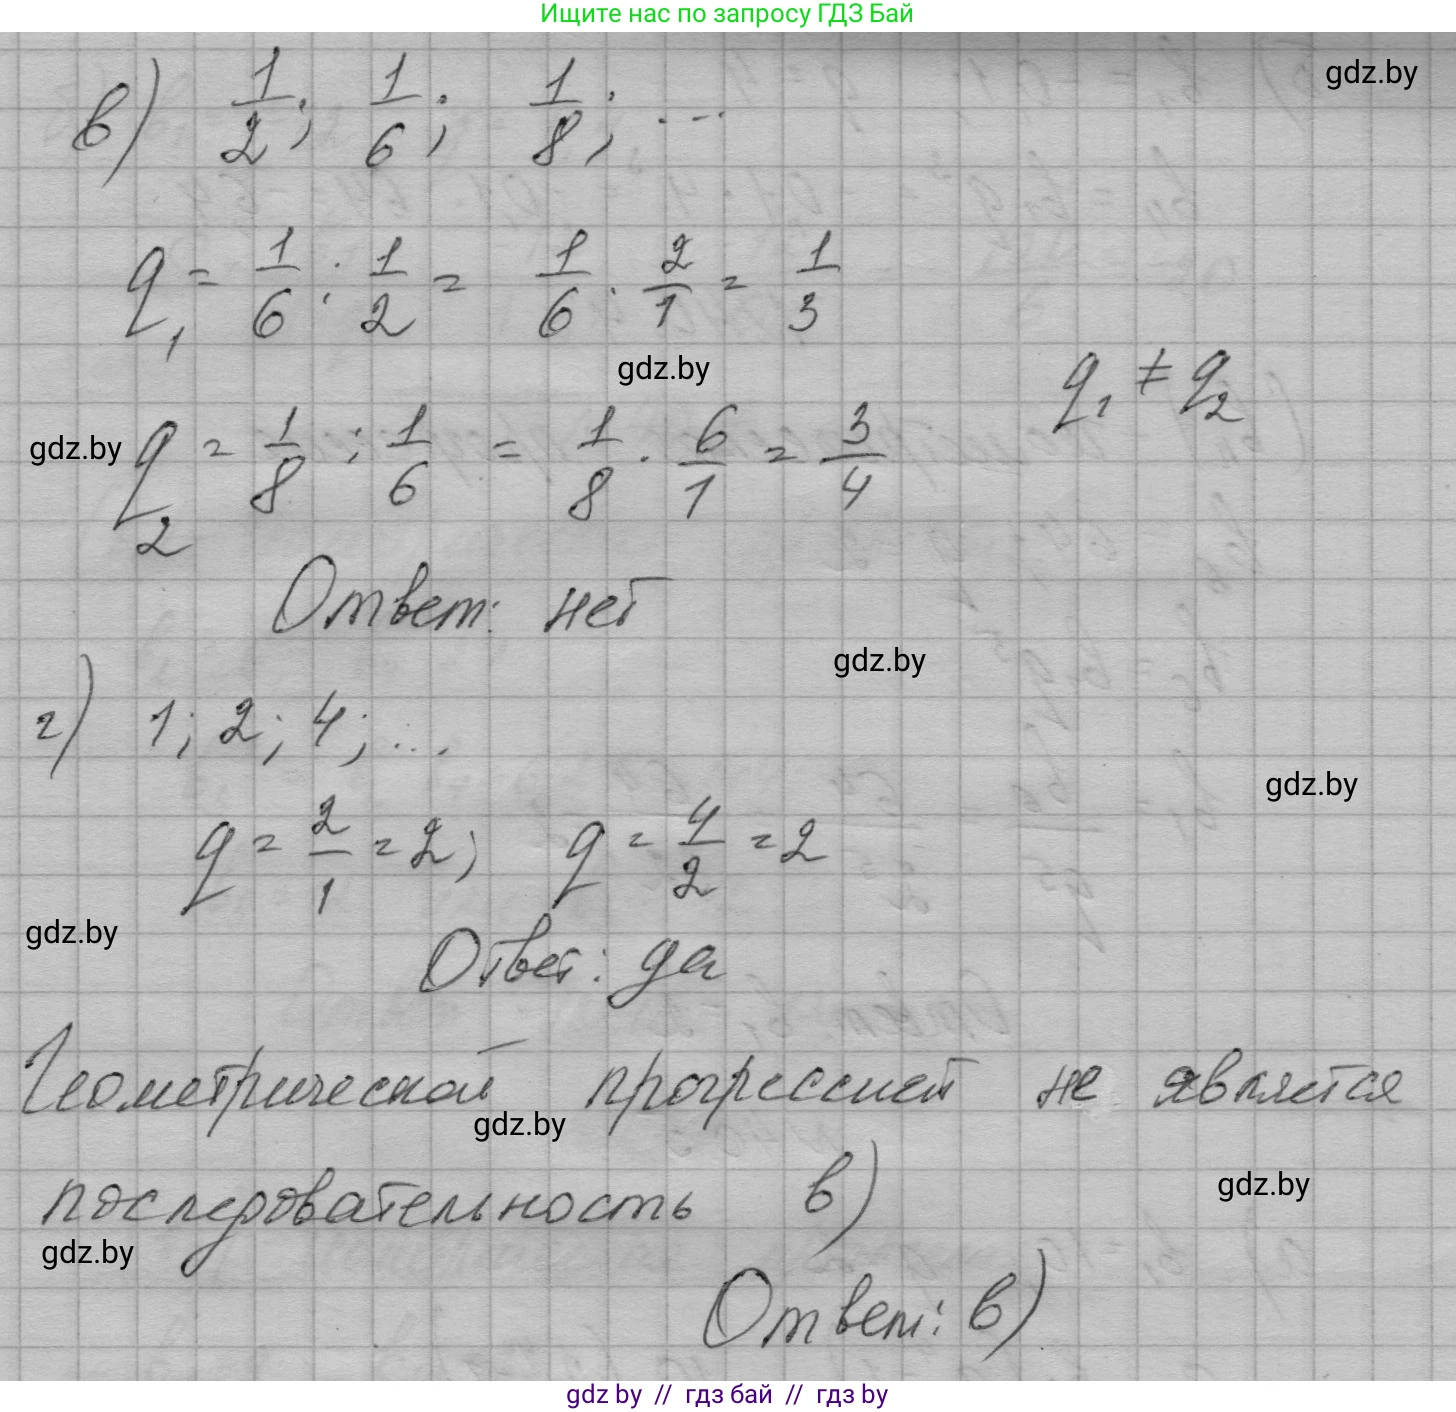 Ищите нас по запросу ГДЗ Бай
gdz.by
в) 1/2; 1/6; 1/8; ...
q₁ = 1/6 : 1/2 = 1/6 · 2/1 = 1/3
gdz.by
q₁ ≠ q₂
gdz.by
q₂ = 1/8 : 1/6 = 1/8 · 6/1 = 3/4
Ответ: нет
gdz.by
г) 1; 2; 4; ...
gdz.by
q = 2/1 = 2; q = 4/2 = 2
gdz.by
Ответ: да
Геометрической прогрессией не является
gdz.by
последовательность в)
gdz.by
gdz.by
Ответ: в)
gdz by // гдз бай // гдз by